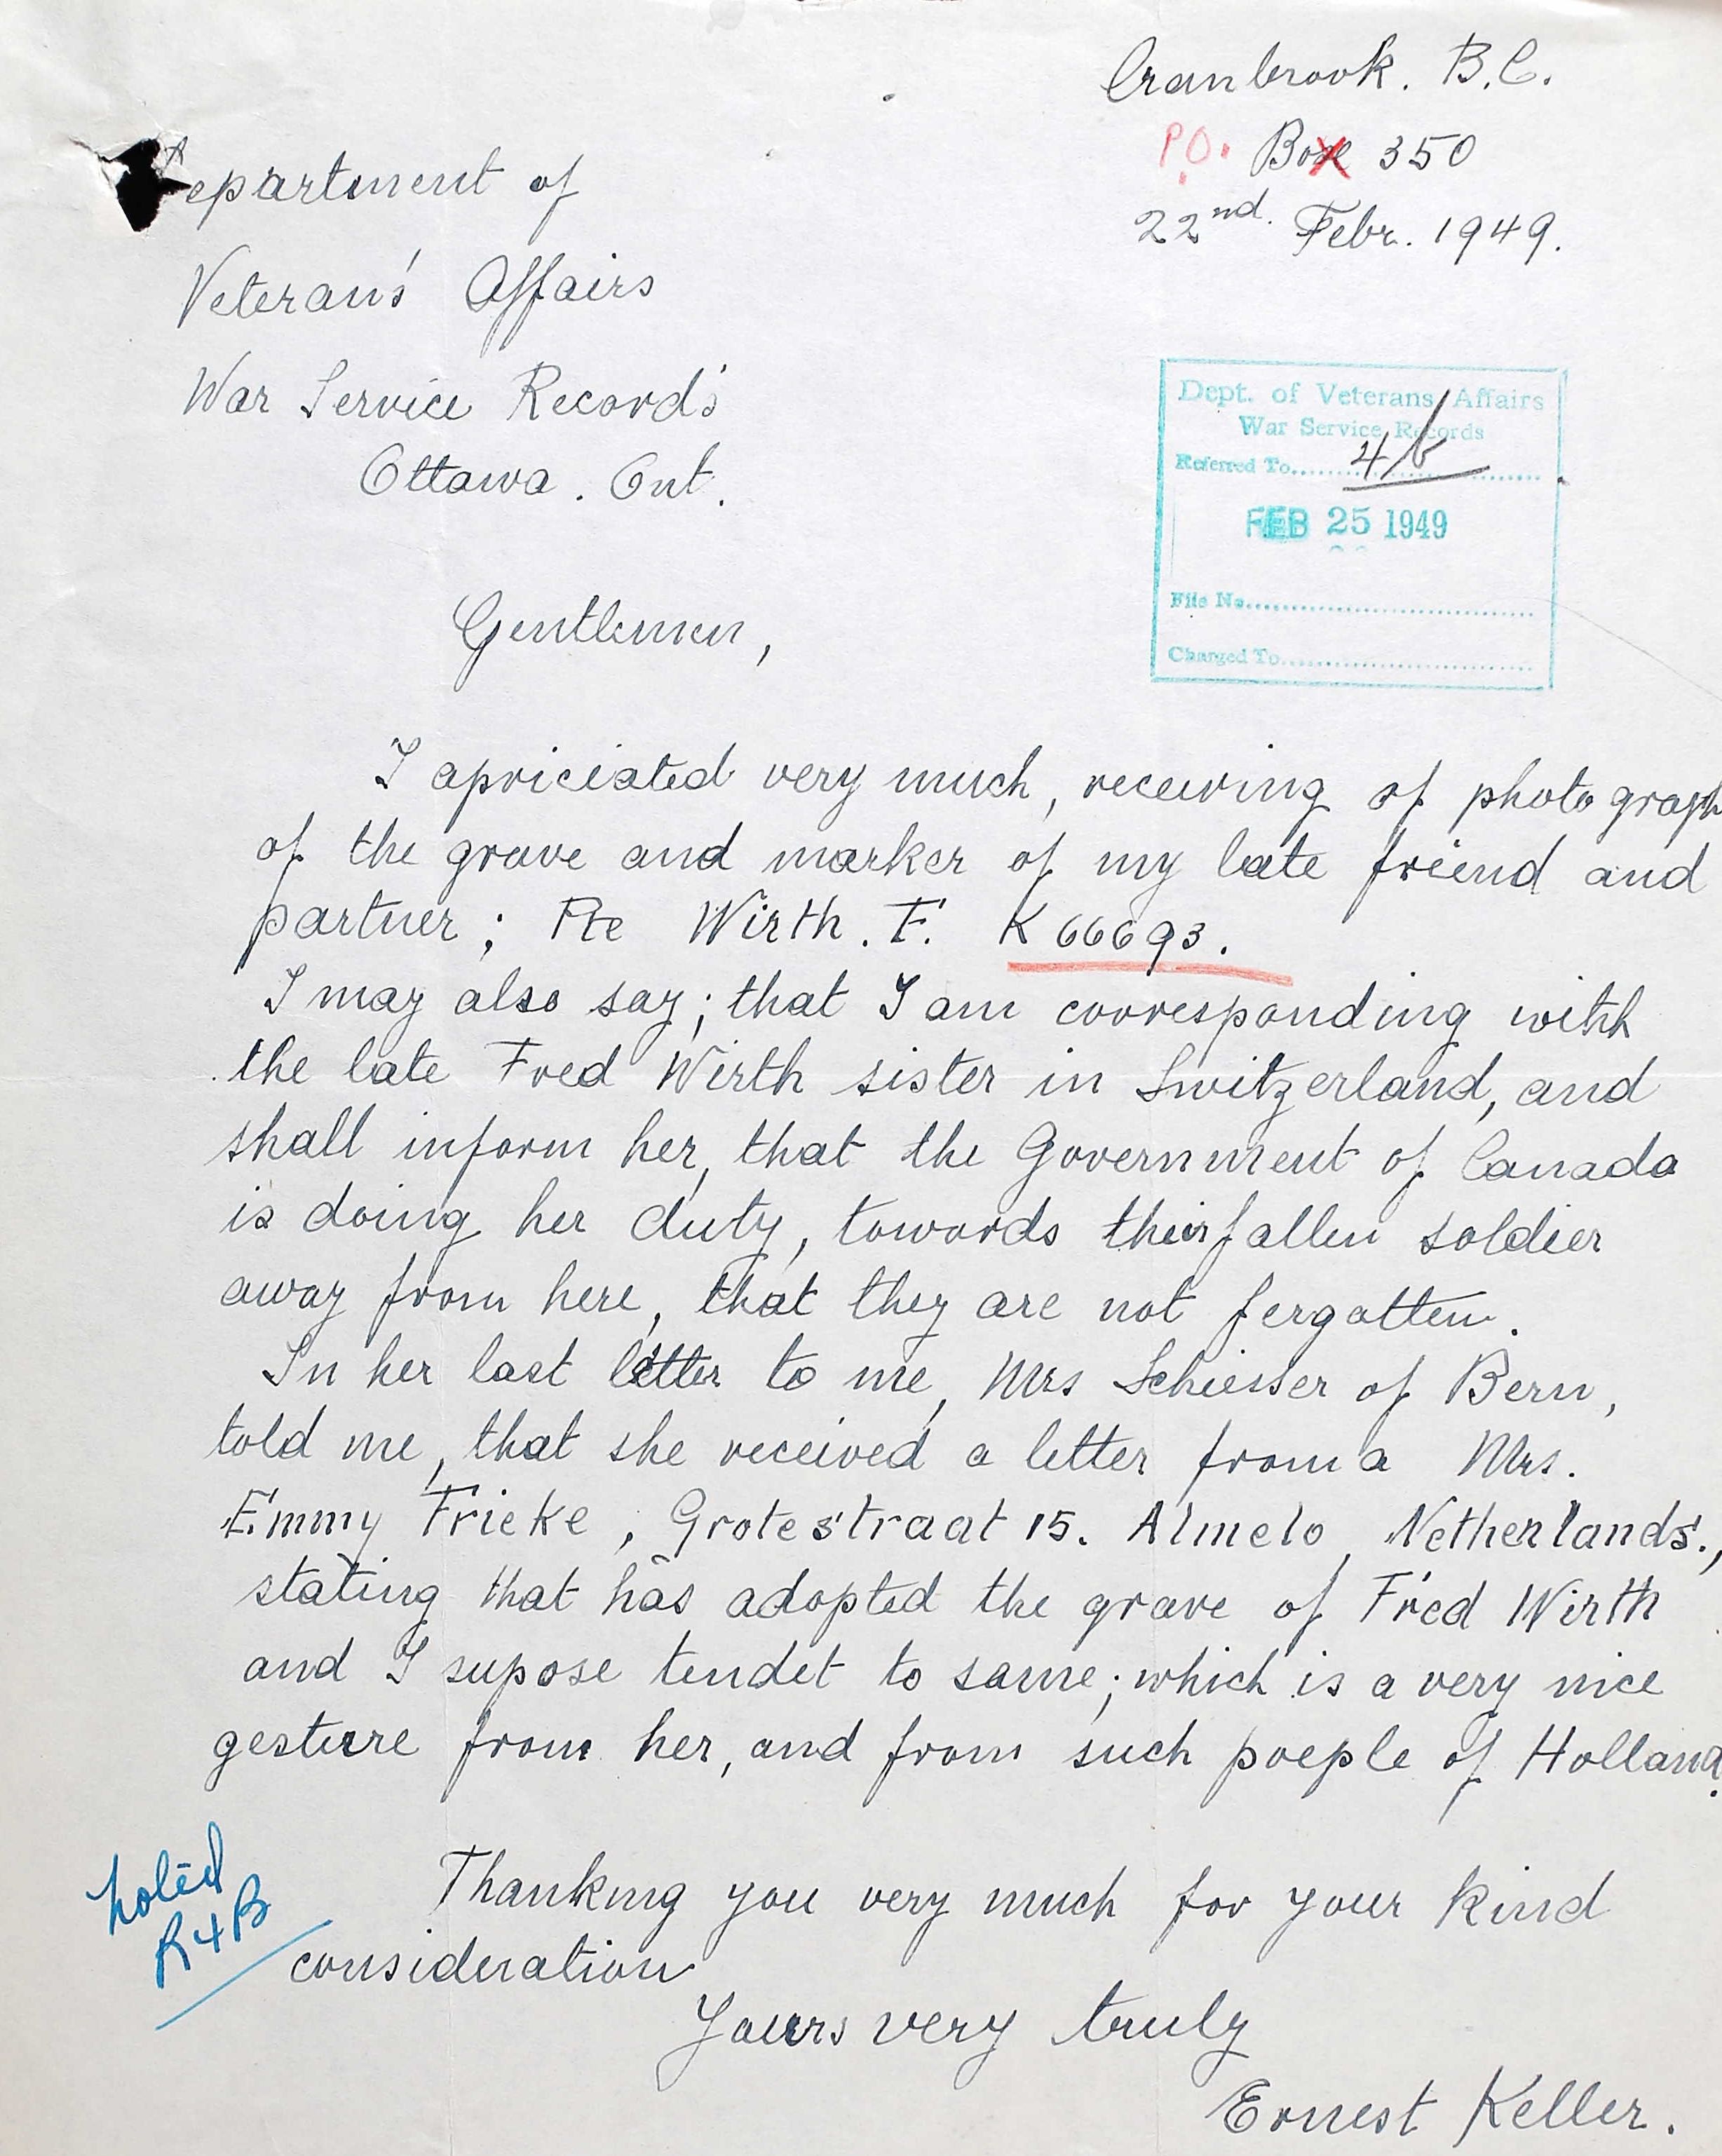 Cranbrook. B.C.
P.O. Box 350
22nd. Febr. 1949.
Department of
Veteran's Affairs
War Service Record's
Ottawa. Ont.
Dept. of Veterans Affairs
War Service Records
Referred To 4b
FEB 25 1949
File No.
Charged To
Gentlemen,
I apriciated very much, receiving of photograph
of the grave and marker of my late friend and
partner; Pte Wirth. F. K 66693.
I may also say; that I am corresponding with
the late Fred Wirth sister in Switzerland, and
shall inform her, that the Government of Canada
is doing her duty, towards their fallen soldier
away from here, that they are not fergotten.
In her last letter to me, Mrs Schiesser of Bern,
told me, that she received a letter from a Mrs.
Emmy Fricke, Grotestraat 15. Almelo, Netherlands.,
stating that has adopted the grave of Fred Wirth
and I supose tendet to same; which is a very nice
gesture from her, and from such poeple of Holland.
Thanking you very much for your kind
consideration
noted
Yours very truly
Ernest Keller.